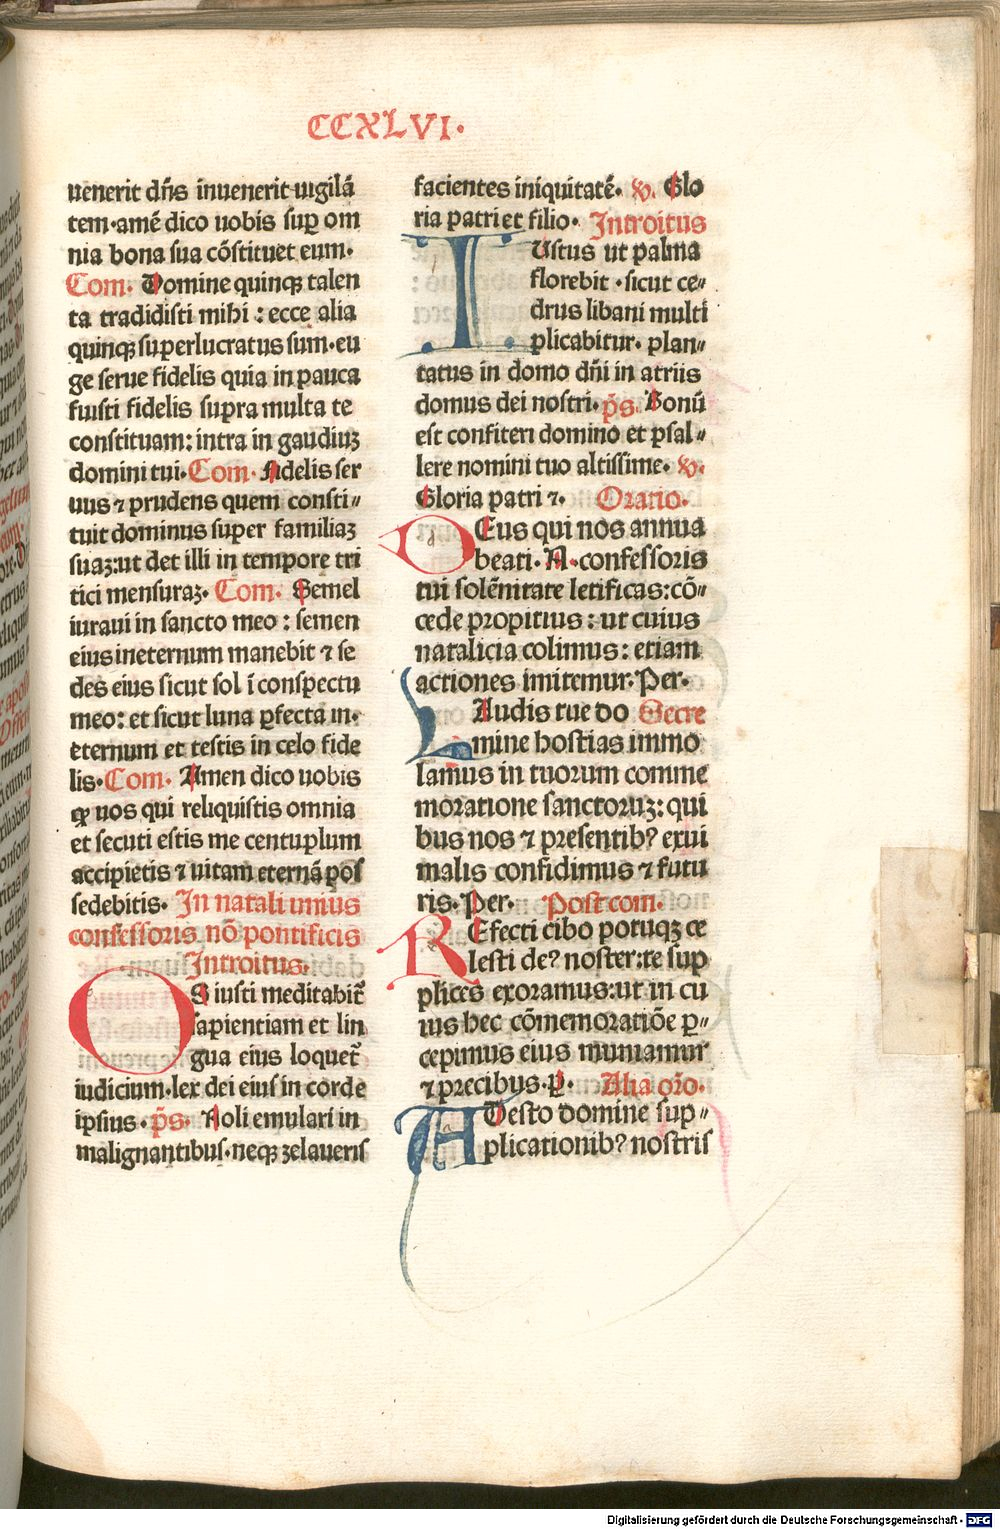 CCXLVI.
uenerit dñs inuenerit uigilã
tem·amẽ dico uobis suꝑ om
nia bona sua cõstituet eum·
Com· Domine quinqꝫ talen
ta tradidisti mihi : ecce alia
quinqꝫ superlucratus sum·eu
ge serue fidelis quia in pauca
fuisti fidelis supra multa te
constituam: intra in gaudiuꝫ
domini tui·Com· Fidelis ser
uus ⁊ prudens quem consti⸗
tuit dominus super familiaꝫ
suaꝫ:ut det illi in tempore tri
tici mensuraꝫ· Com· Semel
iuraui in sancto meo : semen
eius ineternum manebit ⁊ se
des eius sicut sol ĩ conspectu
meo: et sicut luna ꝑfecta in·
eternum et testis in celo fide
lis·Com· Amen dico uobis
ꝙ uos qui reliquistis omnia
et secuti estis me centuplum
accipietis ⁊ uitam eternã pos
sedebitis· In natali unius
confessoris nõ pontificis
Introitus·
OS iusti meditabit̃
sapientiam et lin
gua eius loquet̃
iudicium·lex dei eius in corde
ipsius· p̃s· Noli emulari in
malignantibus·neqꝫ zelaueris
facientes iniquitatẽ· ꝟ· Glo
ria patri et filio· Introitus
IUstus ut palma
florebit ·sicut ce⸗
drus libani multi
plicabitur· plan⸗
tatus in domo dñi in atriis
domus dei nostri·p̃s· Bonũ
est confiteri domino et psal⸗
lere nomini tuo altissime· ꝟ·
Gloria patri ⁊· Oratio·
DEus qui nos annua
beati·A·confessoris
tui solẽnitate letificas:cõ⸗
cede propitius : ut cuius
natalicia colimus: etiam
actiones imitemur·Per·
LAudis tue do Secre
mine hostias immo
lamus in tuorum comme
moratione sanctoruꝫ: qui
bus nos ⁊ presentibꝰ exui
malis confidimus ⁊ futu
ris·Per· Postcom·
REfecti cibo potuqꝫ ce
lesti deꝰ noster:te sup
plices exoramus:ut in cu
ius hec cõmemoratiõe ꝑ⸗
cepimus eius muniamur
⁊ precibus·P· Alia orõ·
ADesto domine sup⸗
plicationibꝰ nostris
Digitalisierung gefördert durch die Deutsche Forschungsgemeinschaft - DFG